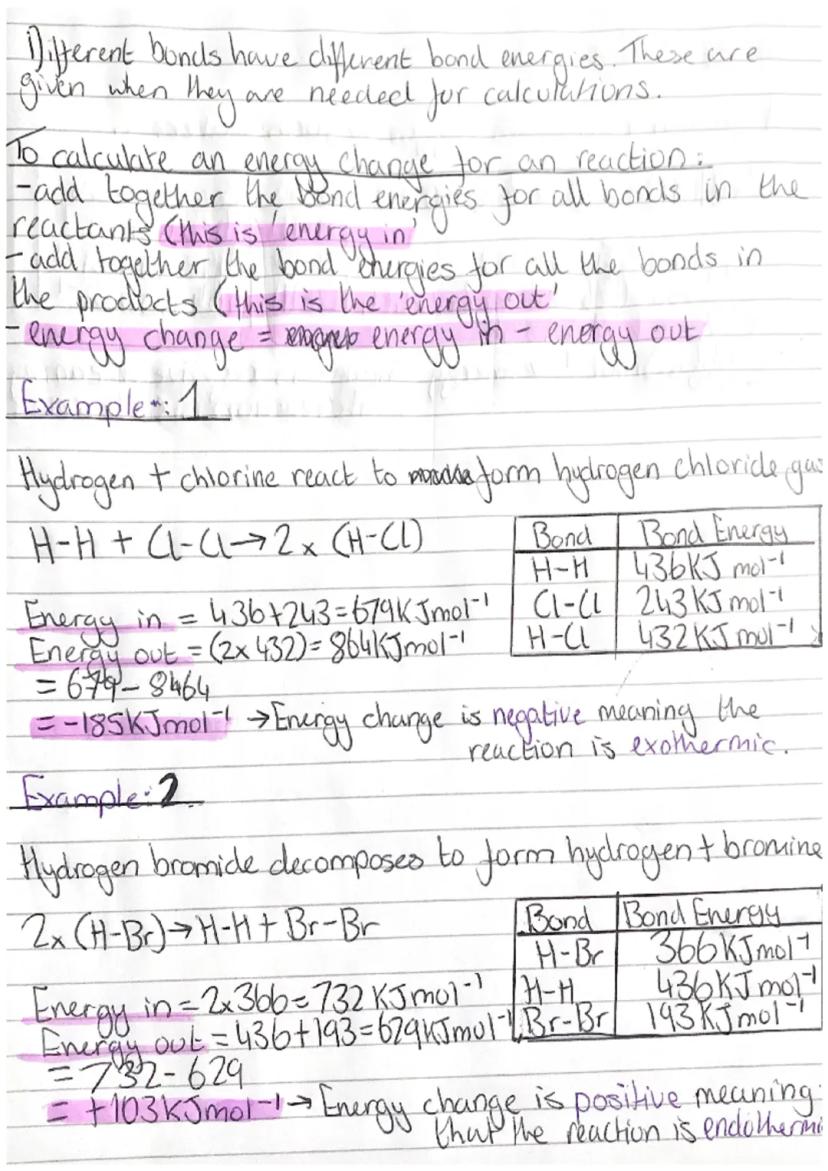 Different bonds have different bond energies. These are
given when they are needed for calculations.
To calculate an energy change for an reaction:
-add together the bond energies for all bonds in the
reactants (this is 'energy in'
-add together the bond energies for all the bonds in
the products (this is the 'energy out'
- energy change = energy in - energy out
Example: 1
Hydrogen + chlorine react to form hydrogen chloride gas
H-H + Cl-Cl→2x (H-Cl)
Bond Bond Energy
H-H 436KJ mol⁻¹
Cl-Cl 243KJ mol⁻¹
H-Cl 432KJ mol⁻¹
Energy in = 436+243=679KJmol⁻¹
Energy out = (2x 432)= 864KJmol⁻¹
= 679- 8464
= -185KJmol⁻¹ →Energy change is negative meaning the
reaction is exothermic.
Example: 2
Hydrogen bromide decomposes to form hydrogen + bromine
2x (H-Br)→H-H + Br-Br
Bond Bond Energy
H-Br 366KJmol⁻¹
H-H 436KJmol⁻¹
Br-Br 193KJmol⁻¹
Energy in = 2x366=732KJmol⁻¹
Energy out = 436+193=629KJmol⁻¹
= 732-629
= +103KJmol⁻¹ → Energy change is positive meaning
that the reaction is endothermi